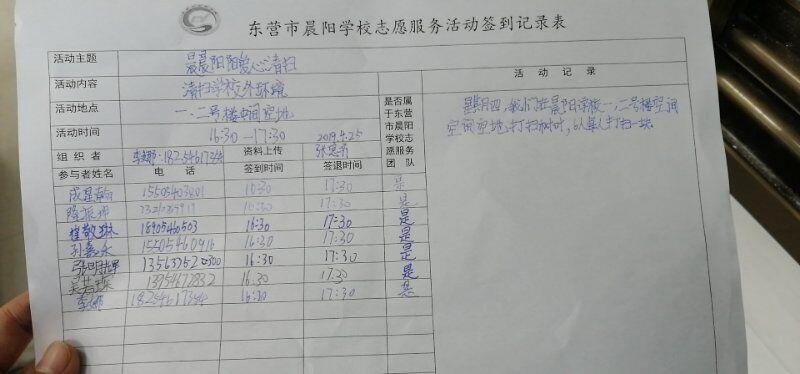 东营市晨阳学校志愿服务活动签到记录表
活动主题 晨晨阳阳爱心清扫
活动内容 清扫学校外环境
活动记录
活动地点 一、二号楼中间空地
是否属于东营市晨阳学校志愿服务团队
活动时间 16:30—17:30 2019.4.25
星期四，我们在晨阳学校一、二号楼空间
空间空地，打扫树叶，6人每人打扫一块。
组织者 资料上传
参与者姓名 电话 签到时间 签退时间
15505403201 16:30 17:30 是
16:30 17:30 是
18905460503 16:30 17:30 是
15505460916 16:30 17:30 是
张明辉 13563752300 16:30 17:30 是
13954672832 16.30 17.30 是
李娜 18254617354 16:30 17:30 是